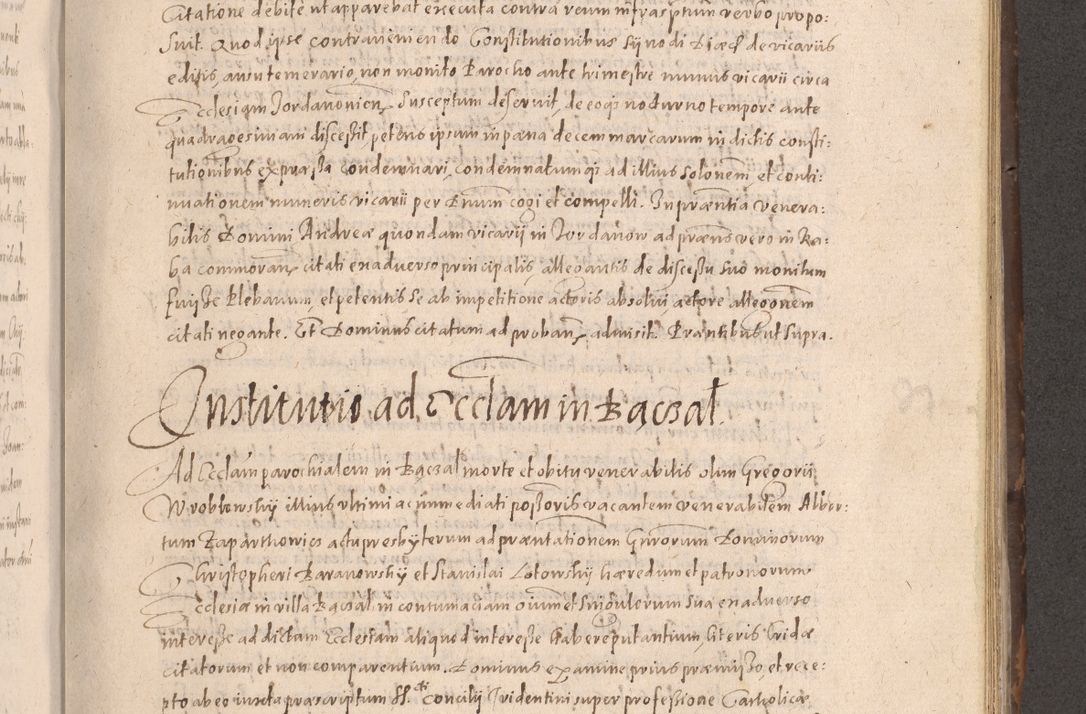 Citatione debite ut apparebat executa contra reum infrascriptum verbo propo:
suit. Quod ipse contraveniendo Constitutionibus Synodi Diæc. de vicariis
editis, ausu temerario, non monito Parocho ante trimestre munus vicarii circa
Ecclesiam Jordanonien. susceptum deseruit, de eoque nocturno tempore ante
quadragesimam discessit petens ipsum in pæna decem marcarum in dictis consti:
tutionibus expressa condemnari, condemnatumque ad illius solonem et conti:
nuationem muneris vicarii per Dnum cogi et compelli. In præntia venera:
bilis Domini Andreæ quondam vicarii in Jordanow ad præns vero in Ra:
ba commoran. citati ex adverso principalis, allegantis de discessu suo monitum
fuisse Plebanum et petentis se ab impetitione actoris absolvi, actore allegonem
citati negante. Et Dominus citatum ad proban. admisit. Præntibus ut supra.
Institutio ad Ecclam in Paczal.
Ad Ecclam parochialem in Paczal morte et obitu venerabilis olim Gregorii
Wroblowskij illius ultimi ac immediati possoris vacantem venerabilem Alber:
tum Zaparthowics actu presbyterum ad præntationem Gnrorum Dominorum
Christopheri Baranowskij et Stanislai Lotowskij hæredum et patronorum
Ecclesiæ in villa Paczal in contumaciam oium et singulorum sua ex adverso
interesse ad dictam Ecclesiam aliquod interesse habere putantium literis Cridæ
citatorum et non comparentium. Dominus examine prius præmisso, et rece:
pto ab eo iuxta præscriptum SS. cti Concilij Tridentini super professione Catholicæ